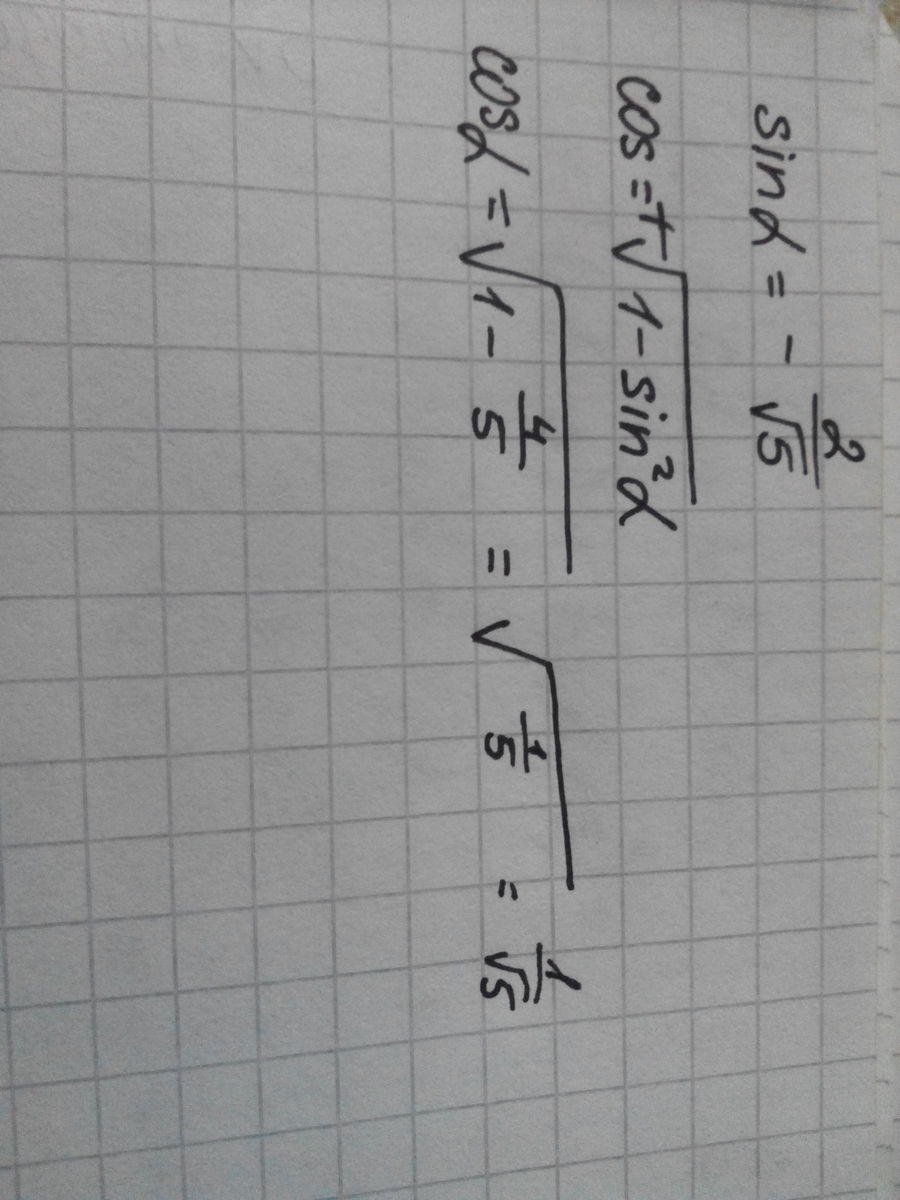 sinα = - 2/√5
cos = +√(1-sin²α)
cosα = √(1 - 4/5) = √(1/5) = 1/√5